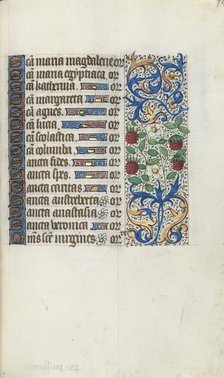 cā maria magdalene or
cā maria egyptiaca or
cā katherina or
cā margareta or
cā agnes or
cā lucia or
cā scolastica or
cā columba or
ancta fides or
ancta spes or
ancta caritas or
ancta austreberta or
ancta anastasia or
ancta veronica or
ōns scē virgines or